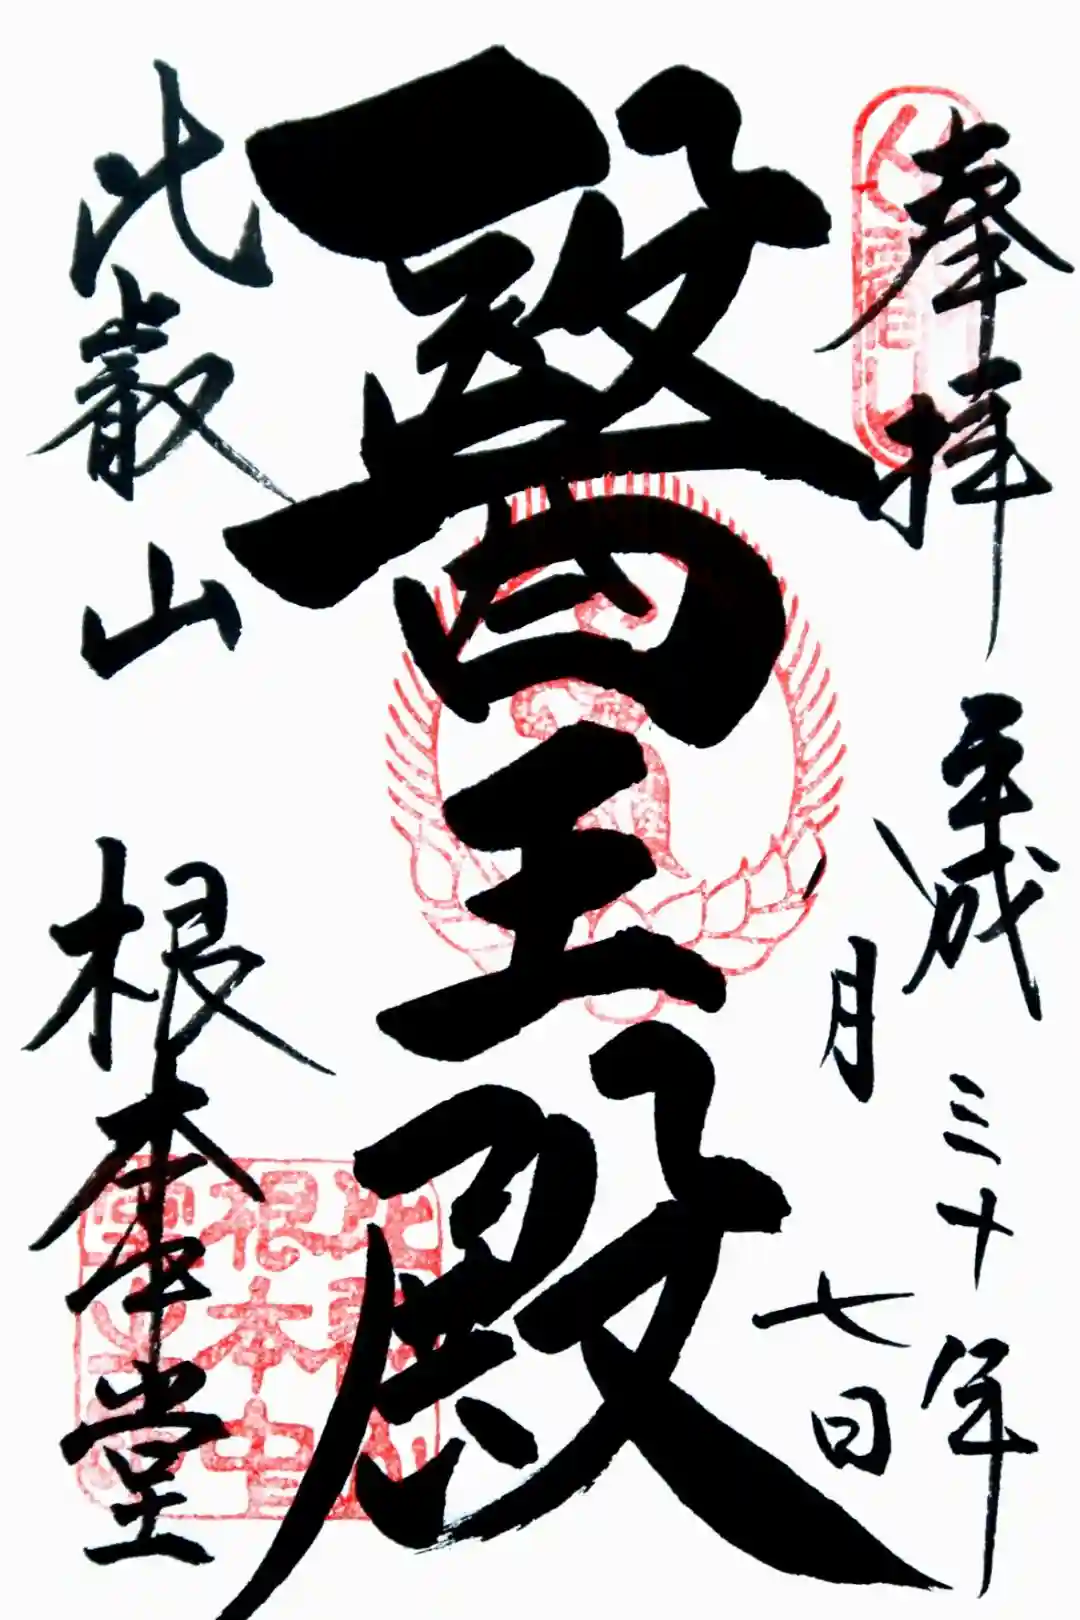 奉拝 平成三十年
八月七日
醫王殿
比叡山 根本中堂
比叡山
根本中
堂之印